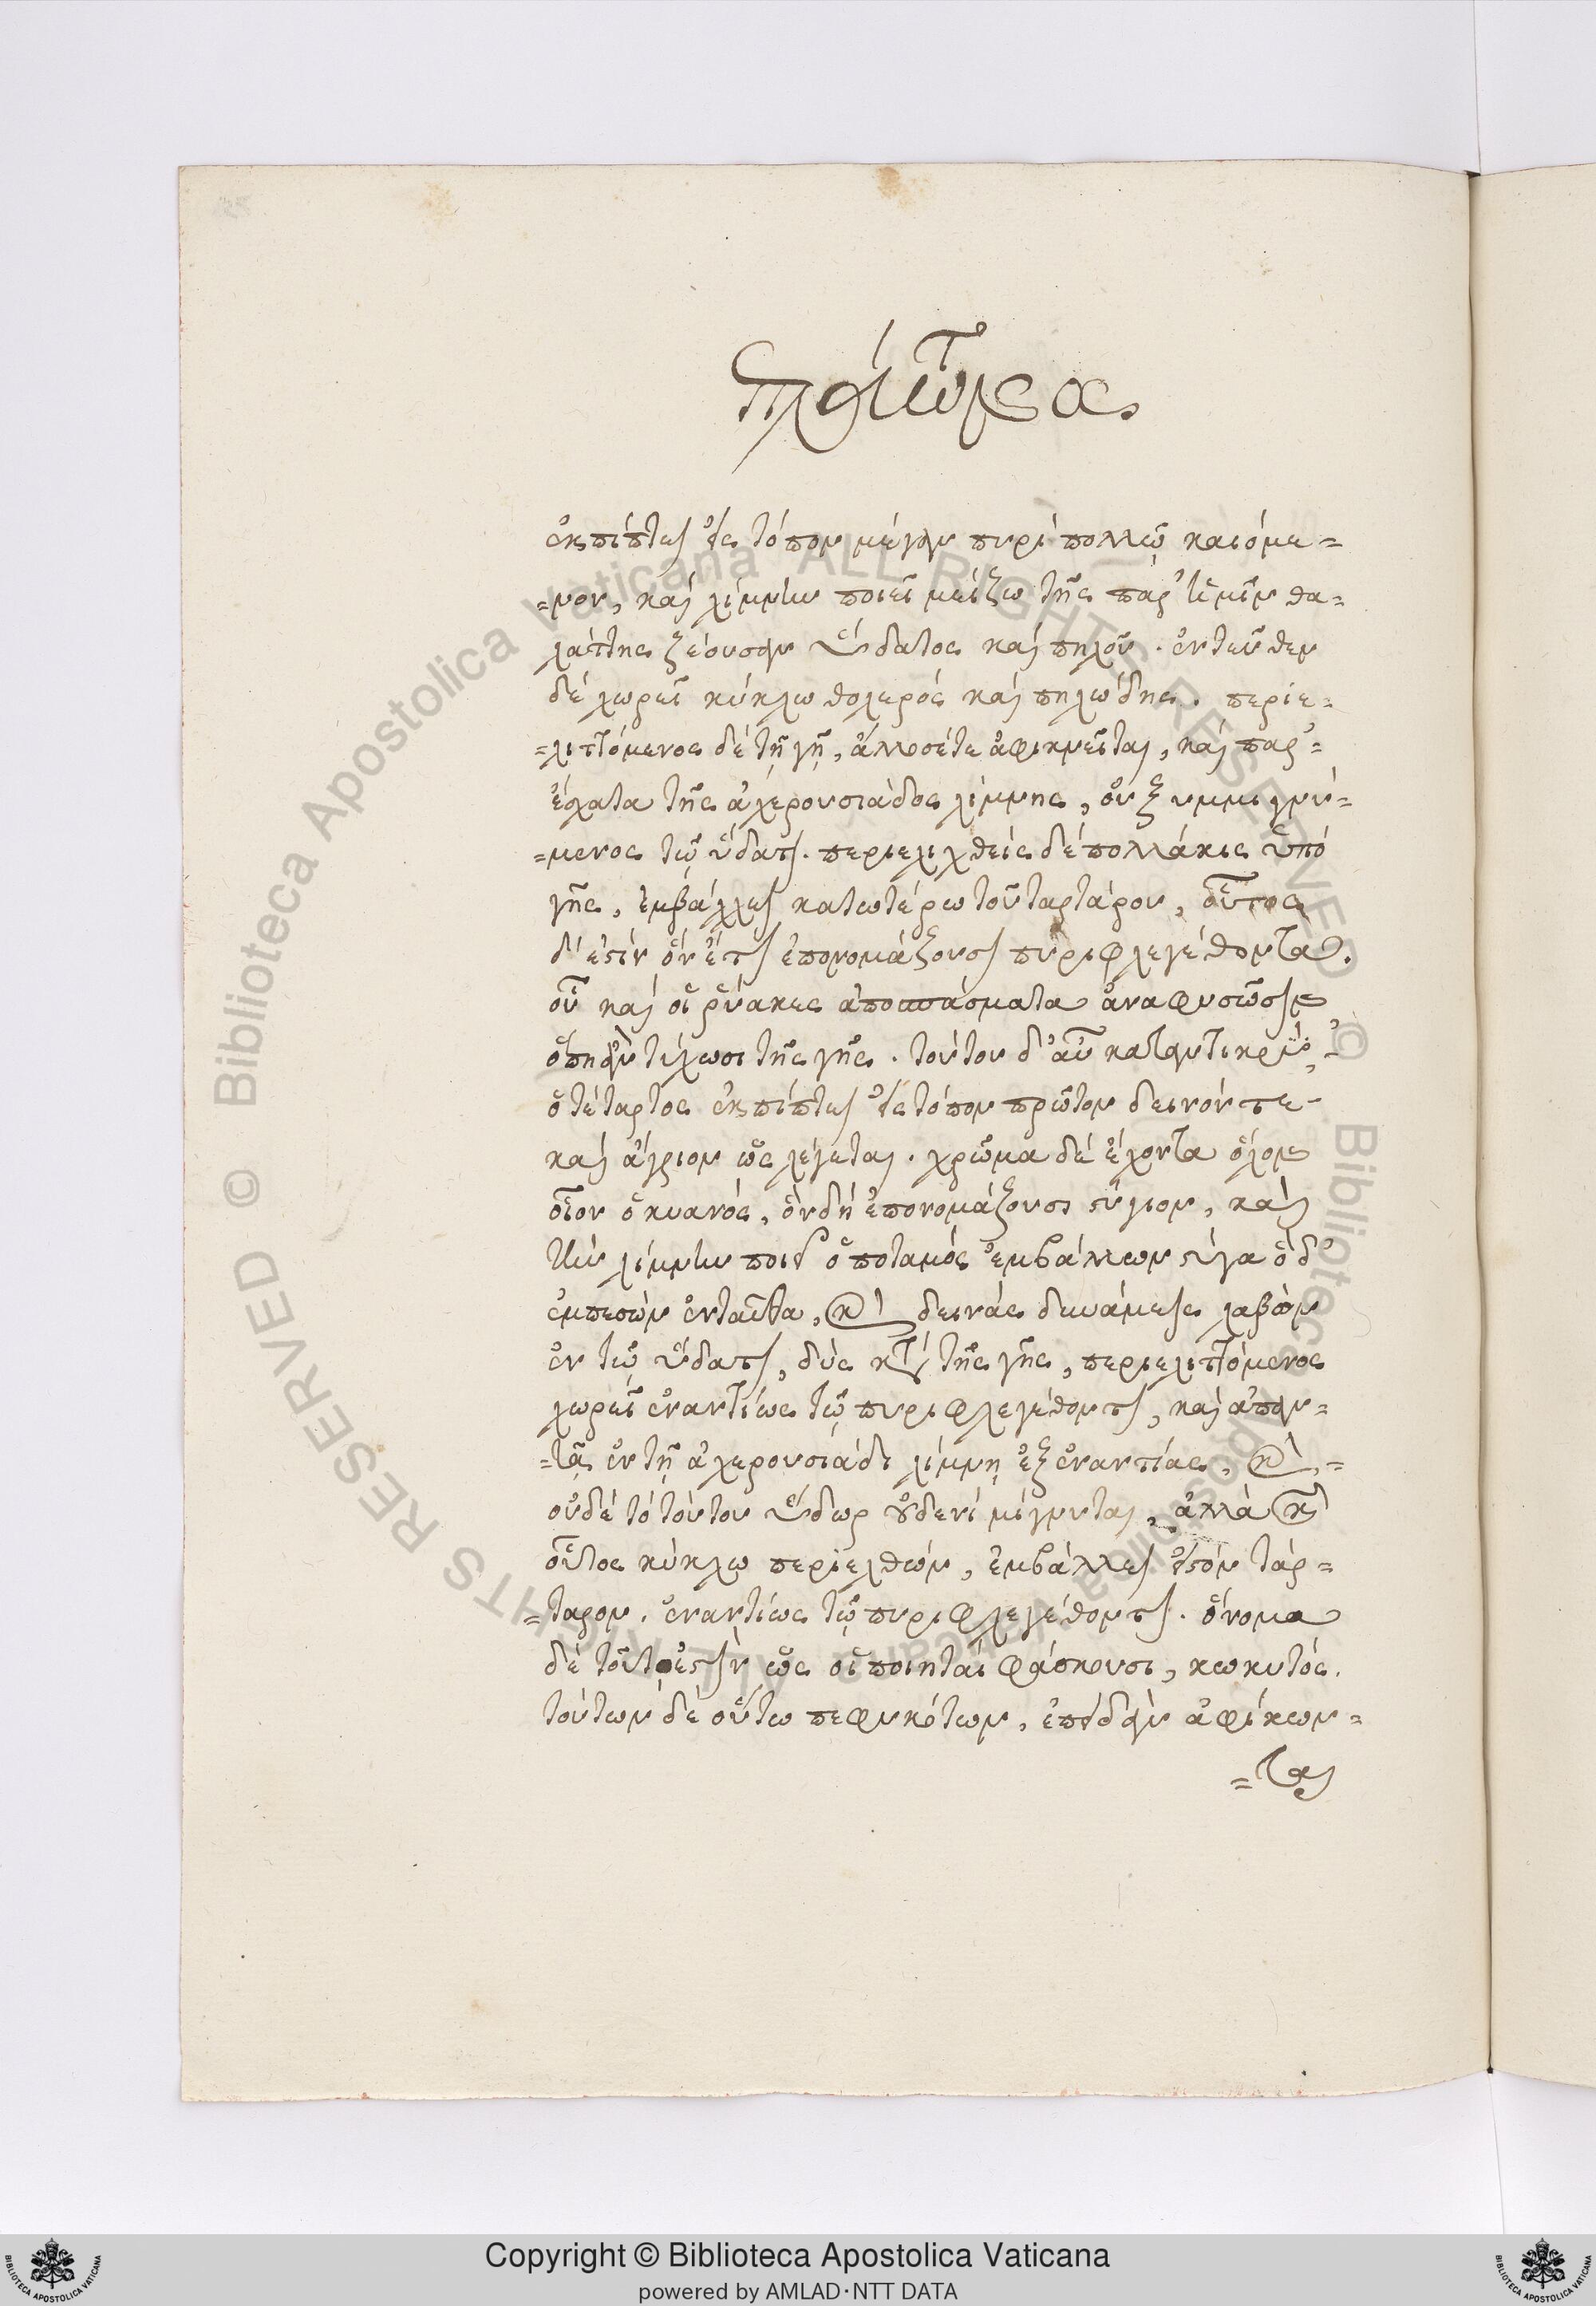 πλάτωνος
ἐκπίπτει εἰς τόπον μέγαν πυρὶ πολλῷ καιόμε=
=νον, καὶ λίμνην ποιεῖ μείζω τῆς παρ' ἡμῖν θα=
λάττης ζέουσαν ὕδατος καὶ πηλοῦ. ἐντεῦθεν
δὲ χωρεῖ κύκλω θολερὸς καὶ πηλώδης. περιε=
=λιττόμενος δὲ τῇ γῇ, ἄλλοσέ τε ἀφικνεῖται, καὶ παρ'=
ἔσχατα τῆς ἀχερουσιάδος λίμνης, οὐ ξυμμιγνύ=
=μενος τῷ ὕδατι. περιελιχθεὶς δὲ πολλάκις ὑπὸ
γῆς, ἐμβάλλει κατωτέρω τοῦ ταρτάρου, οὗτος
δ' ἐστὶν ὃν ἔτι ἐπονομάζουσι πυριφλεγέθοντα.
οὗ καὶ οἱ ῥύακες ἀποσπάσματα ἀναφυσῶσιν
ὅπη ἂν τύχωσι τῆς γῆς. τούτου δ' αὖ καταντικρὺ,
ὁ τέταρτος ἐκπίπτει εἰς τόπον πρῶτον δεινόν τε
καὶ ἄγριον ὡς λέγεται. χρῶμα δὲ ἔχοντα ὅλον
οἷον ὁ κυανός, ὃν δὴ ἐπονομάζουσι στύγιον, καὶ
τὴν λίμνην ποιεῖ ὁ ποταμὸς ἐμβάλλων στύγα ὁ δ'
ἐμπεσὼν ἐνταῦθα, καὶ δεινὰς δυνάμεις λαβὼν
ἐν τῷ ὕδατι, δὺς κατὰ τῆς γῆς, περιελιττόμενος
χωρεῖ ἐναντίως τῷ πυριφλεγέθοντι, καὶ ἀπαν=
=τᾷ ἐν τῇ ἀχερουσιάδι λίμνη ἐξ ἐναντίας, καὶ,=
οὐδὲ τὸ τούτου ὕδωρ οὐδενὶ μίγνυται, ἀλλὰ καὶ
οὗτος κύκλω περιελθὼν, ἐμβάλλει εἰς τὸν τάρ=
=ταρον. ἐναντίως τῷ πυριφλεγέθοντι. ὄνομα
δὲ τούτω ἐστὶν ὡς οἱ ποιηταὶ φάσκουσι, κωκυτός.
τούτων δὲ οὕτω πεφυκότων, ἐπειδὰν ἀφίκων=
=ται
Copyright © Biblioteca Apostolica Vaticana
powered by AMLAD·NTT DATA